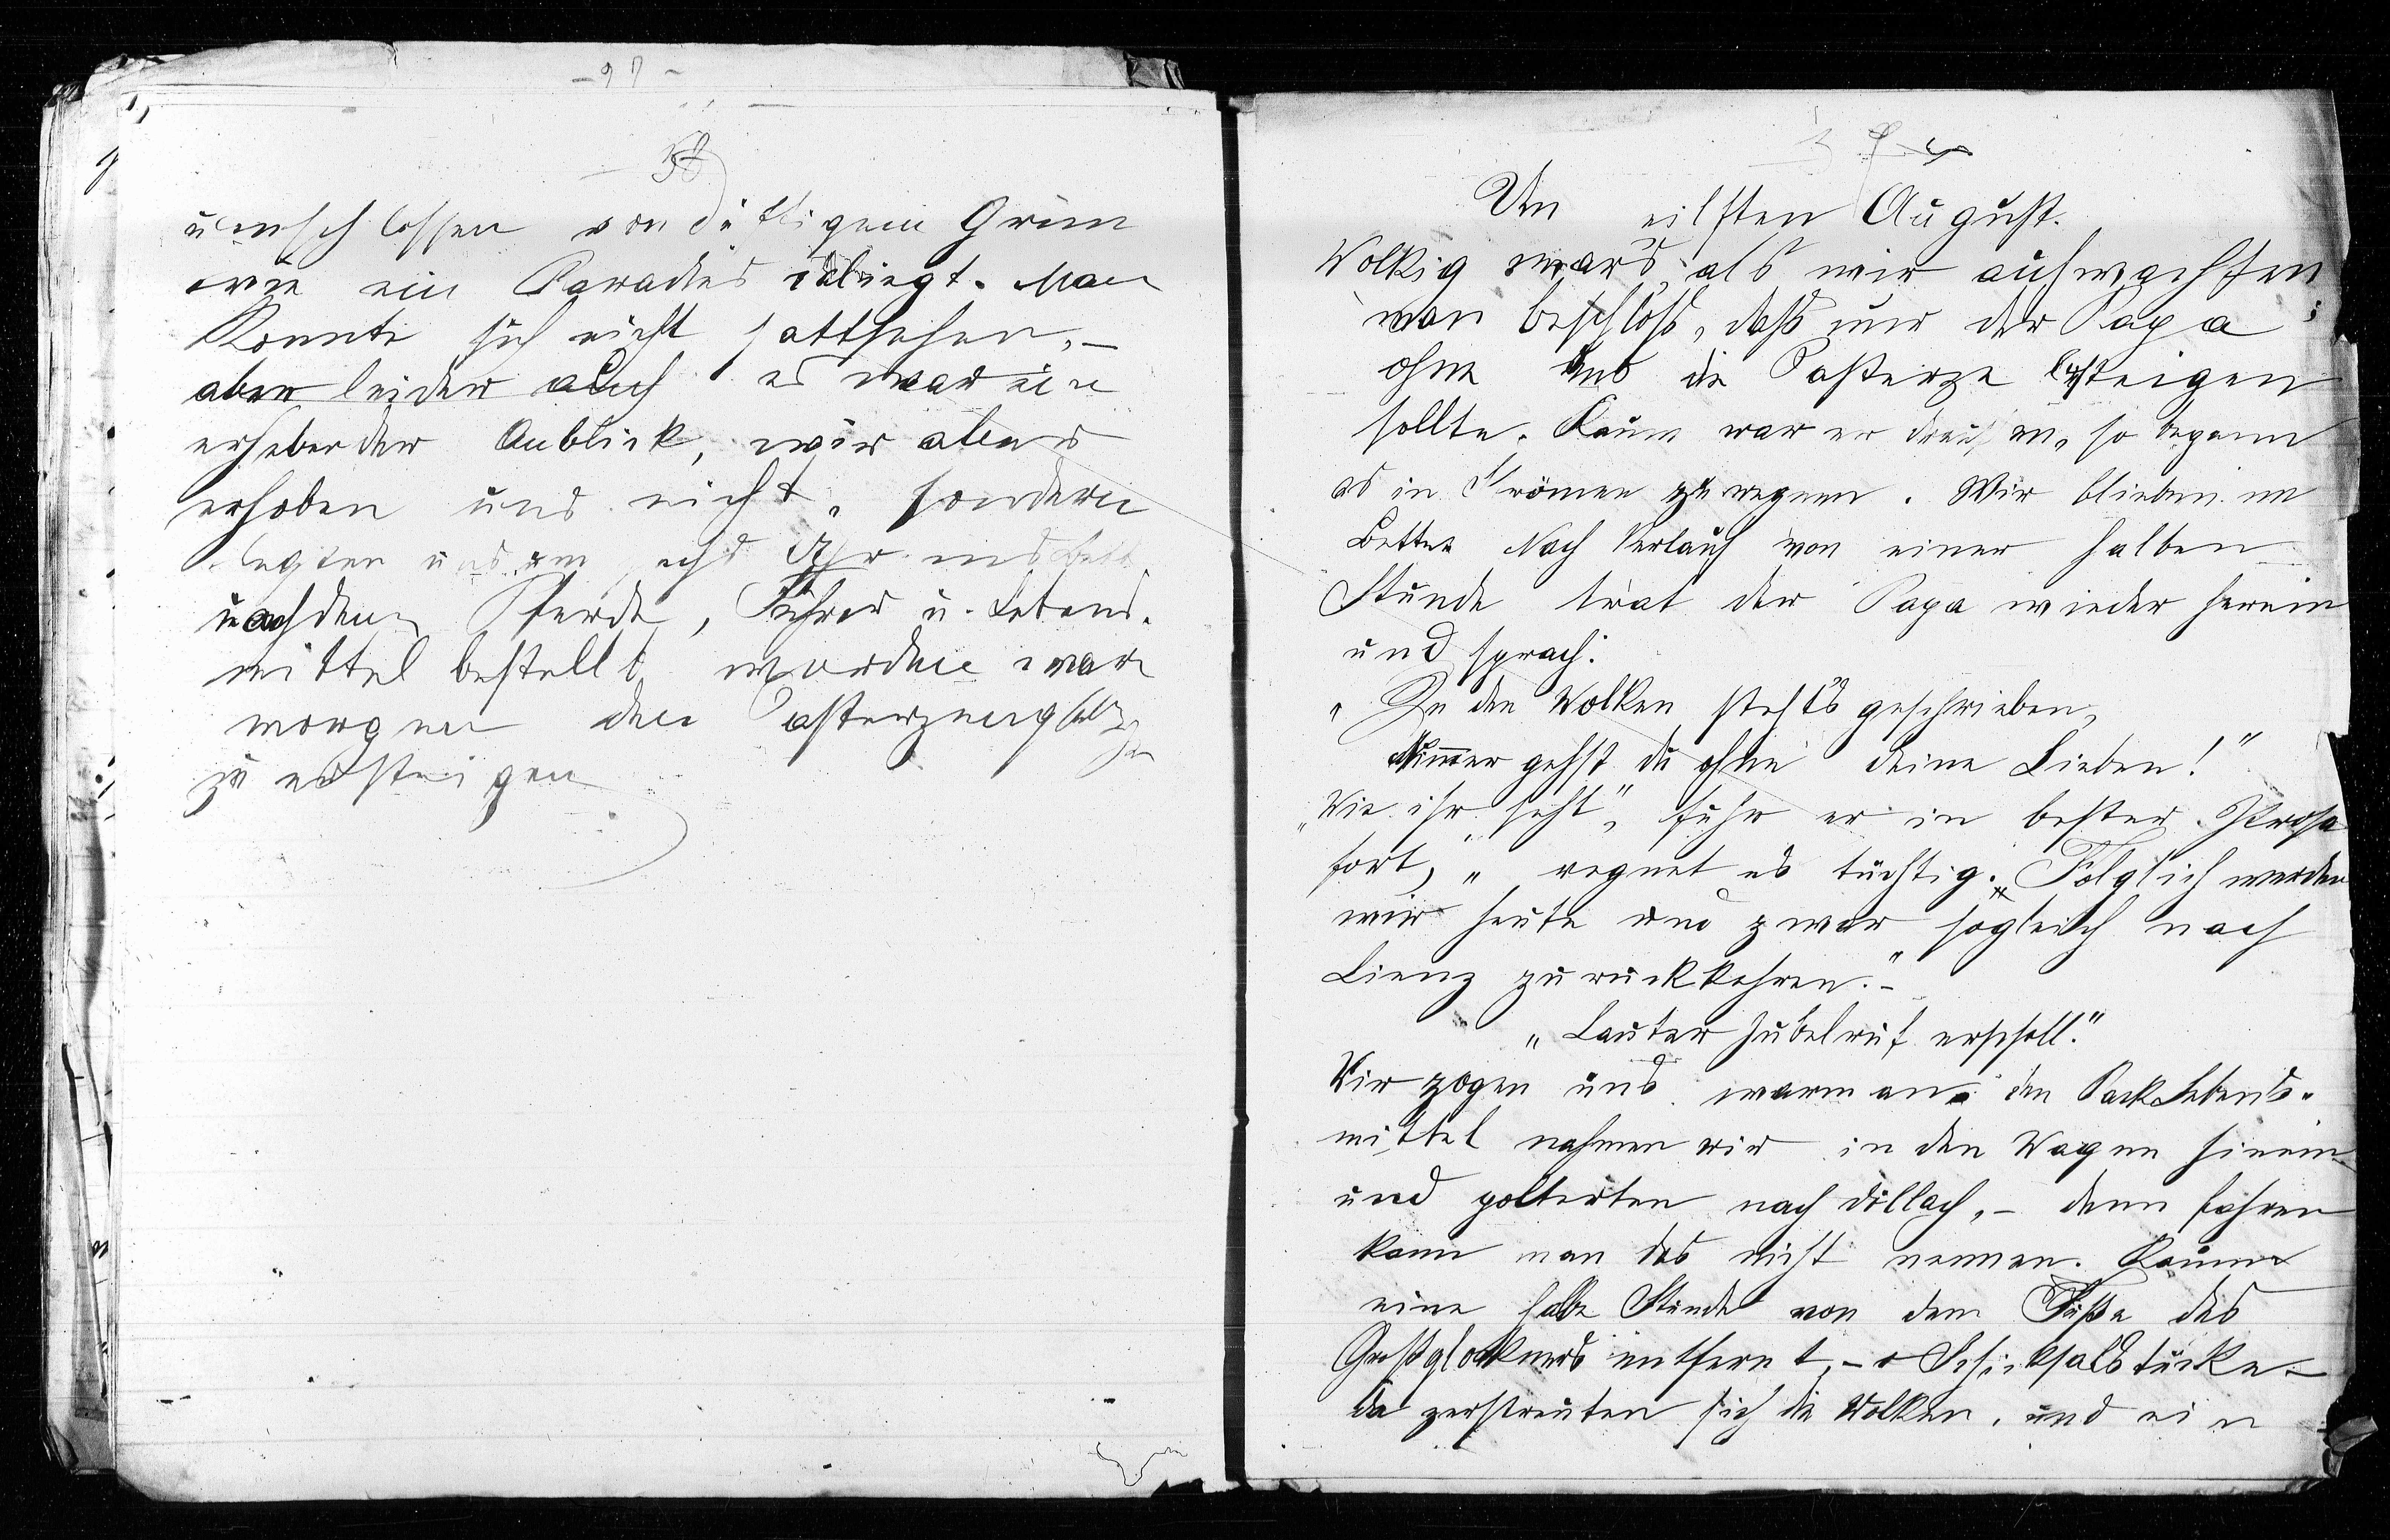 - 97 -
58
umschlossen von duftigem Grün
wie ein Paradies daliegt. Man
konnte sich nicht sattsehen, –
aber leider auch es war ein
erhebender Anblick, wir aber
erhoben uns nicht, sondern
legten uns um acht Uhr ins Bett
nachdem Pferde, Führer u. Lebens-
mittel bestellt worden war
morgen den
zu ersteigen
Am eilften August.
Wolkig war's, als wir aufwachten
man beschloß, daß nur der Papa
ohne uns die Pasterze besteigen
sollte. Kaum war er draußen, so begann
es in Strömen zu regnen. Wir blieben im
Bette. Nach Verlauf von einer halben
Stunde trat der Papa wieder herein
und sprach:
„In den Wolken steht's geschrieben,
Nimmer gehst du ohne deine Lieben!"
„Wie ihr seht", fuhr er in bester Prosa
fort, „regnet es tüchtig. Folglich werden
wir heute und zwar sogleich nach
Lienz zurückkehren." –
„Lauter Jubelruf erscholl."
Wir zogen uns warm an den Pack Lebens-
mittel nahmen wir in den Wagen hinein
und polterten nach Döllach, – denn fahren
kann man das nicht nennen. Kaum
eine halbe Stunde von dem Fuße des
Großglockners entfernt, – o Schicksalstücke –
da zerstreuten sich die Wolken, und ein